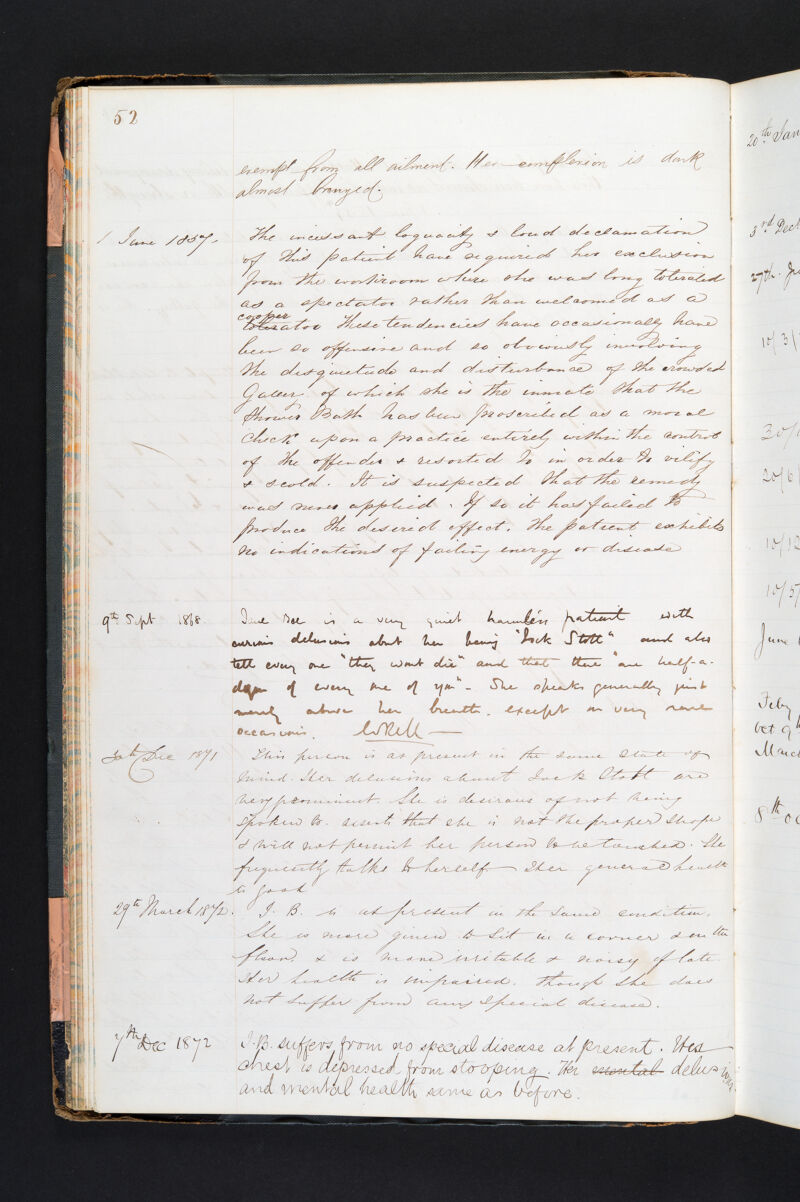 52
exempt from all ailment. Her complexion is dark
almost bronzed.
1 June 1857. The incessant loquacity & loud declamation
of this patient have required her exclusion
from the workroom where she was long tolerated
as a spectator rather than welcomed as a
cooper
tolerator These tendencies have occasionally have
been so offensive and so obviously involving
the disquietude and disturbance of the crowded
Gallery of which she is the inmate that the
Shower Bath has been proscribed as a moral
check upon a practice entirely within the control
of the offender & resorted to in order to vilify
& scold. It is suspected that the remedy
was never applied. If so it has failed to
produce the desired effect. The patient exhibits
no indications of failing energy or disease
9th Sept 1868 is a very quiet harmless patient with
curious delusions about her being "Jock Stott" and also
tell every one "they wont die" and that there "are half-a-
dozen of every one of you" - She speaks generally just
merely above her breath, except on very rare
occasions.
30th Dec 1871 This person is at present in the same state of
mind. Her delusions about Jock Stott are
very prominent. She is desirous of not being
spoken to. asserts that she is not the proper shape
& will not permit her person to be touched. She
frequently talks to herself Her general health
is good
29th March 1872. J. B. is at present in the same condition.
She is more given to sit in a corner & on the
floor, & is more irritable & noisy of late.
Her health is unimpaired. though she does
not suffer from any special disease.
7th Dec 1872 J.B. suffers from no special disease at present. Her
chest is depressed from stooping. Her mental delusions
and mental health same as before.
20th Jan
3rd Dec
27th
10/3/
30/
20/6/
10/12
10/5/
June
Feby
Oct 9
March
8th Oc